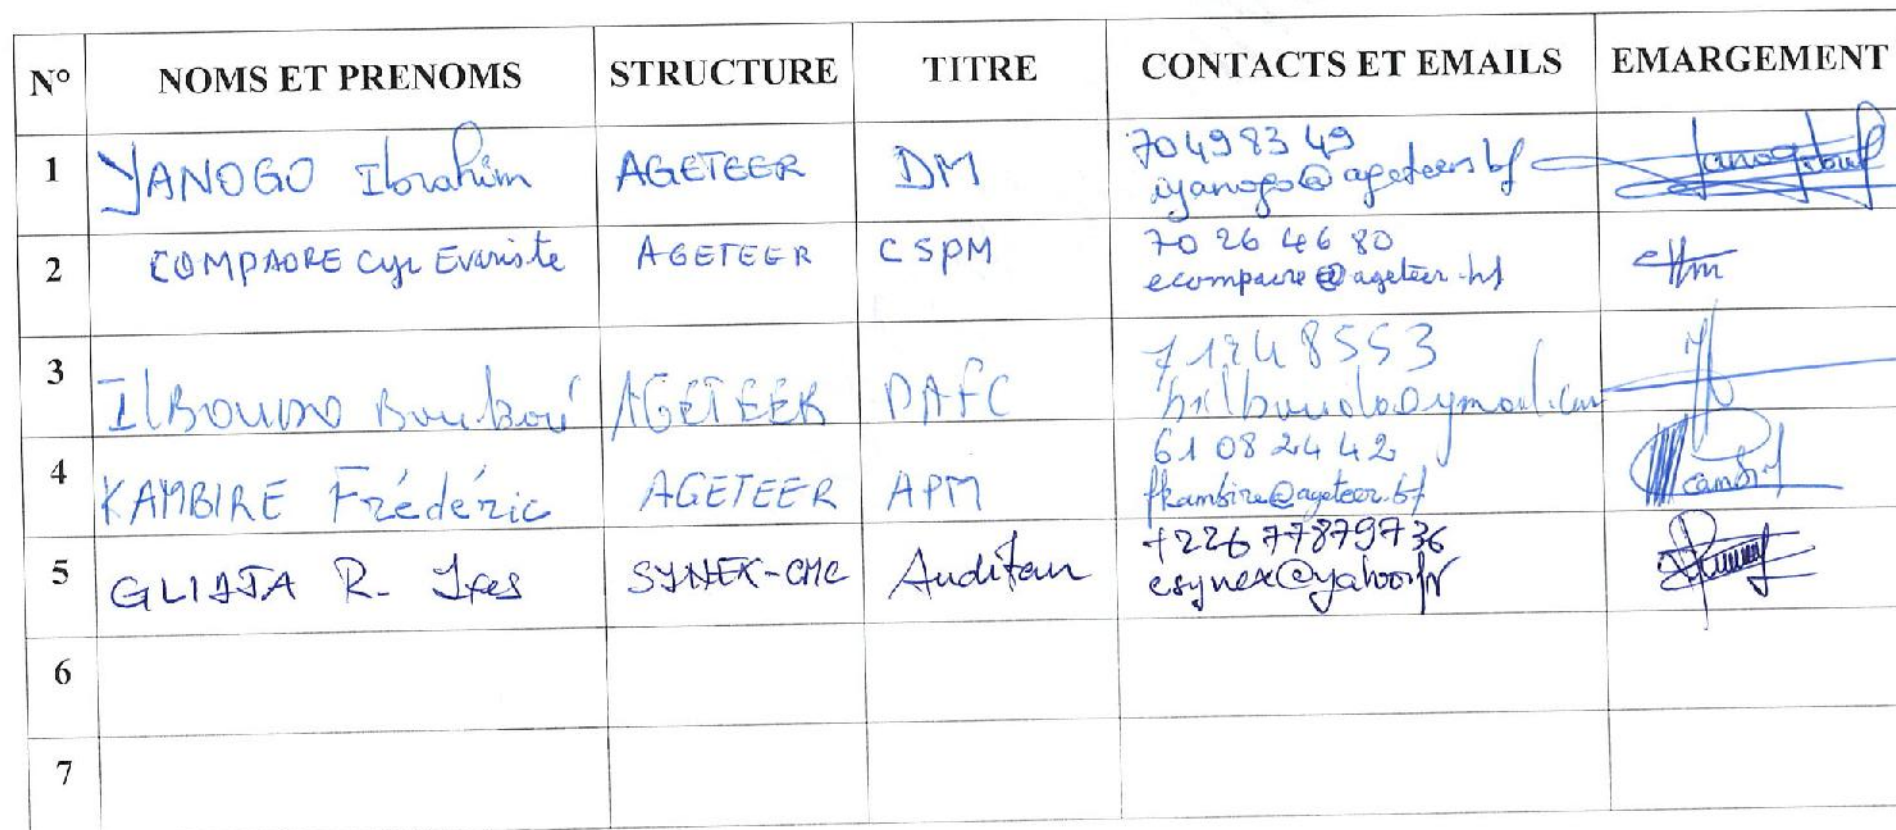 N° NOMS ET PRENOMS STRUCTURE TITRE CONTACTS ET EMAILS EMARGEMENT
1 YANOGO Ibrahim AGETEER DM 70 49 83 49
iyanogo@ageteer.bf
2 COMPAORE Cyr Evariste AGETEER CSPM 70 26 46 80
ecompaore@ageteer.bf
3 ILBOUDO Boukaré AGETEER DAFC 71248553
bilboudo@ymail.com
4 KAMBIRE Frédéric AGETEER APM 61 08 24 42
fkambire@ageteer.bf
5 R. SYNEX-CMC Auditeur +226 77879736
esynex@yahoo.fr
6
7